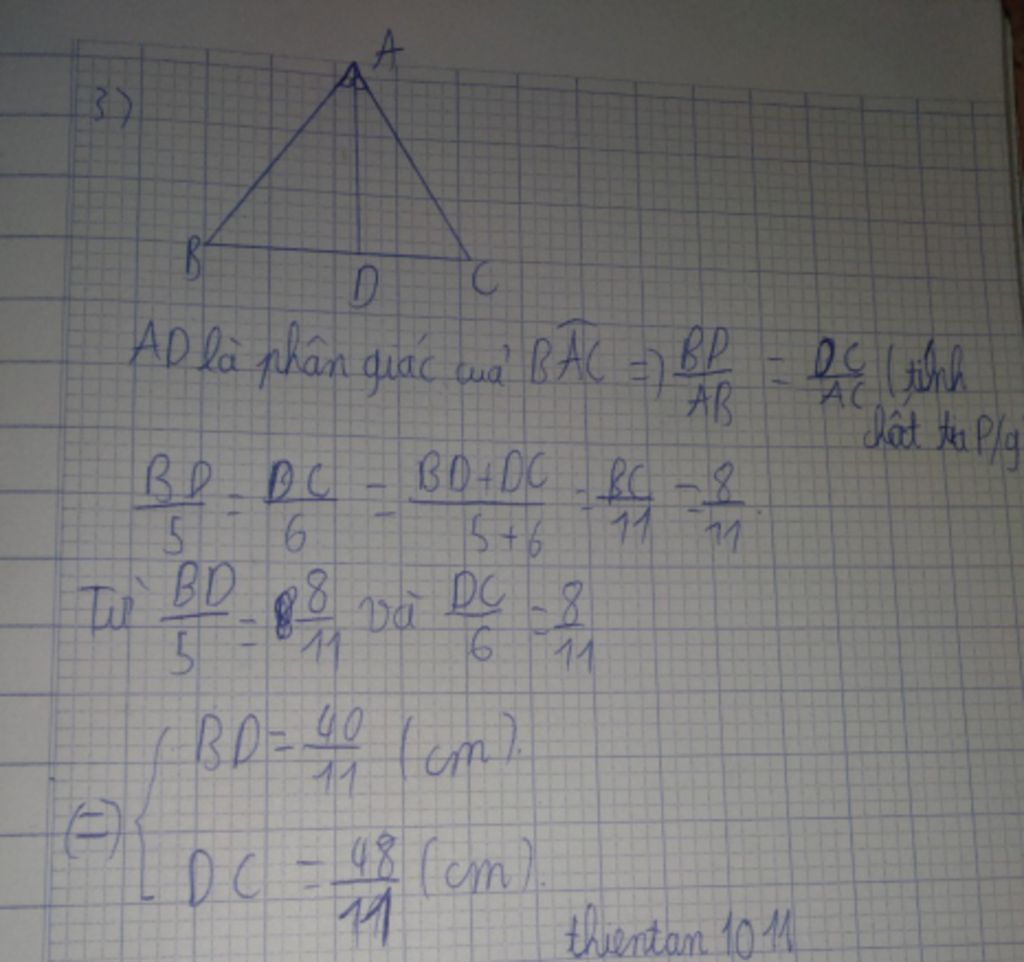 3)
A
B
D
C
AD là phân giác của BÂC => BD/AB = DC/AC (tính
chất tia P/g
BD/5 = DC/6 = BD+DC/5+6 = BC/11 = 8/11.
Từ BD/5 = 8/11 và DC/6 = 8/11
(=) { BD = 40/11 (cm).
DC = 48/11 (cm).
thientan 1011